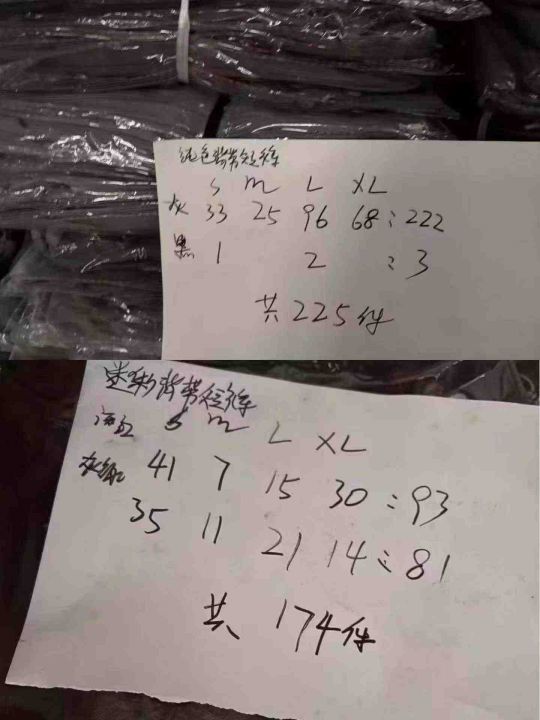 纯色背带短裤
S m L XL
灰 33 25 96 68 : 222
黑 1 2 : 3
共 225 件
迷彩背带短裤
S m L XL
41 7 15 30 : 93
35 11 21 14 : 81
共 174 件